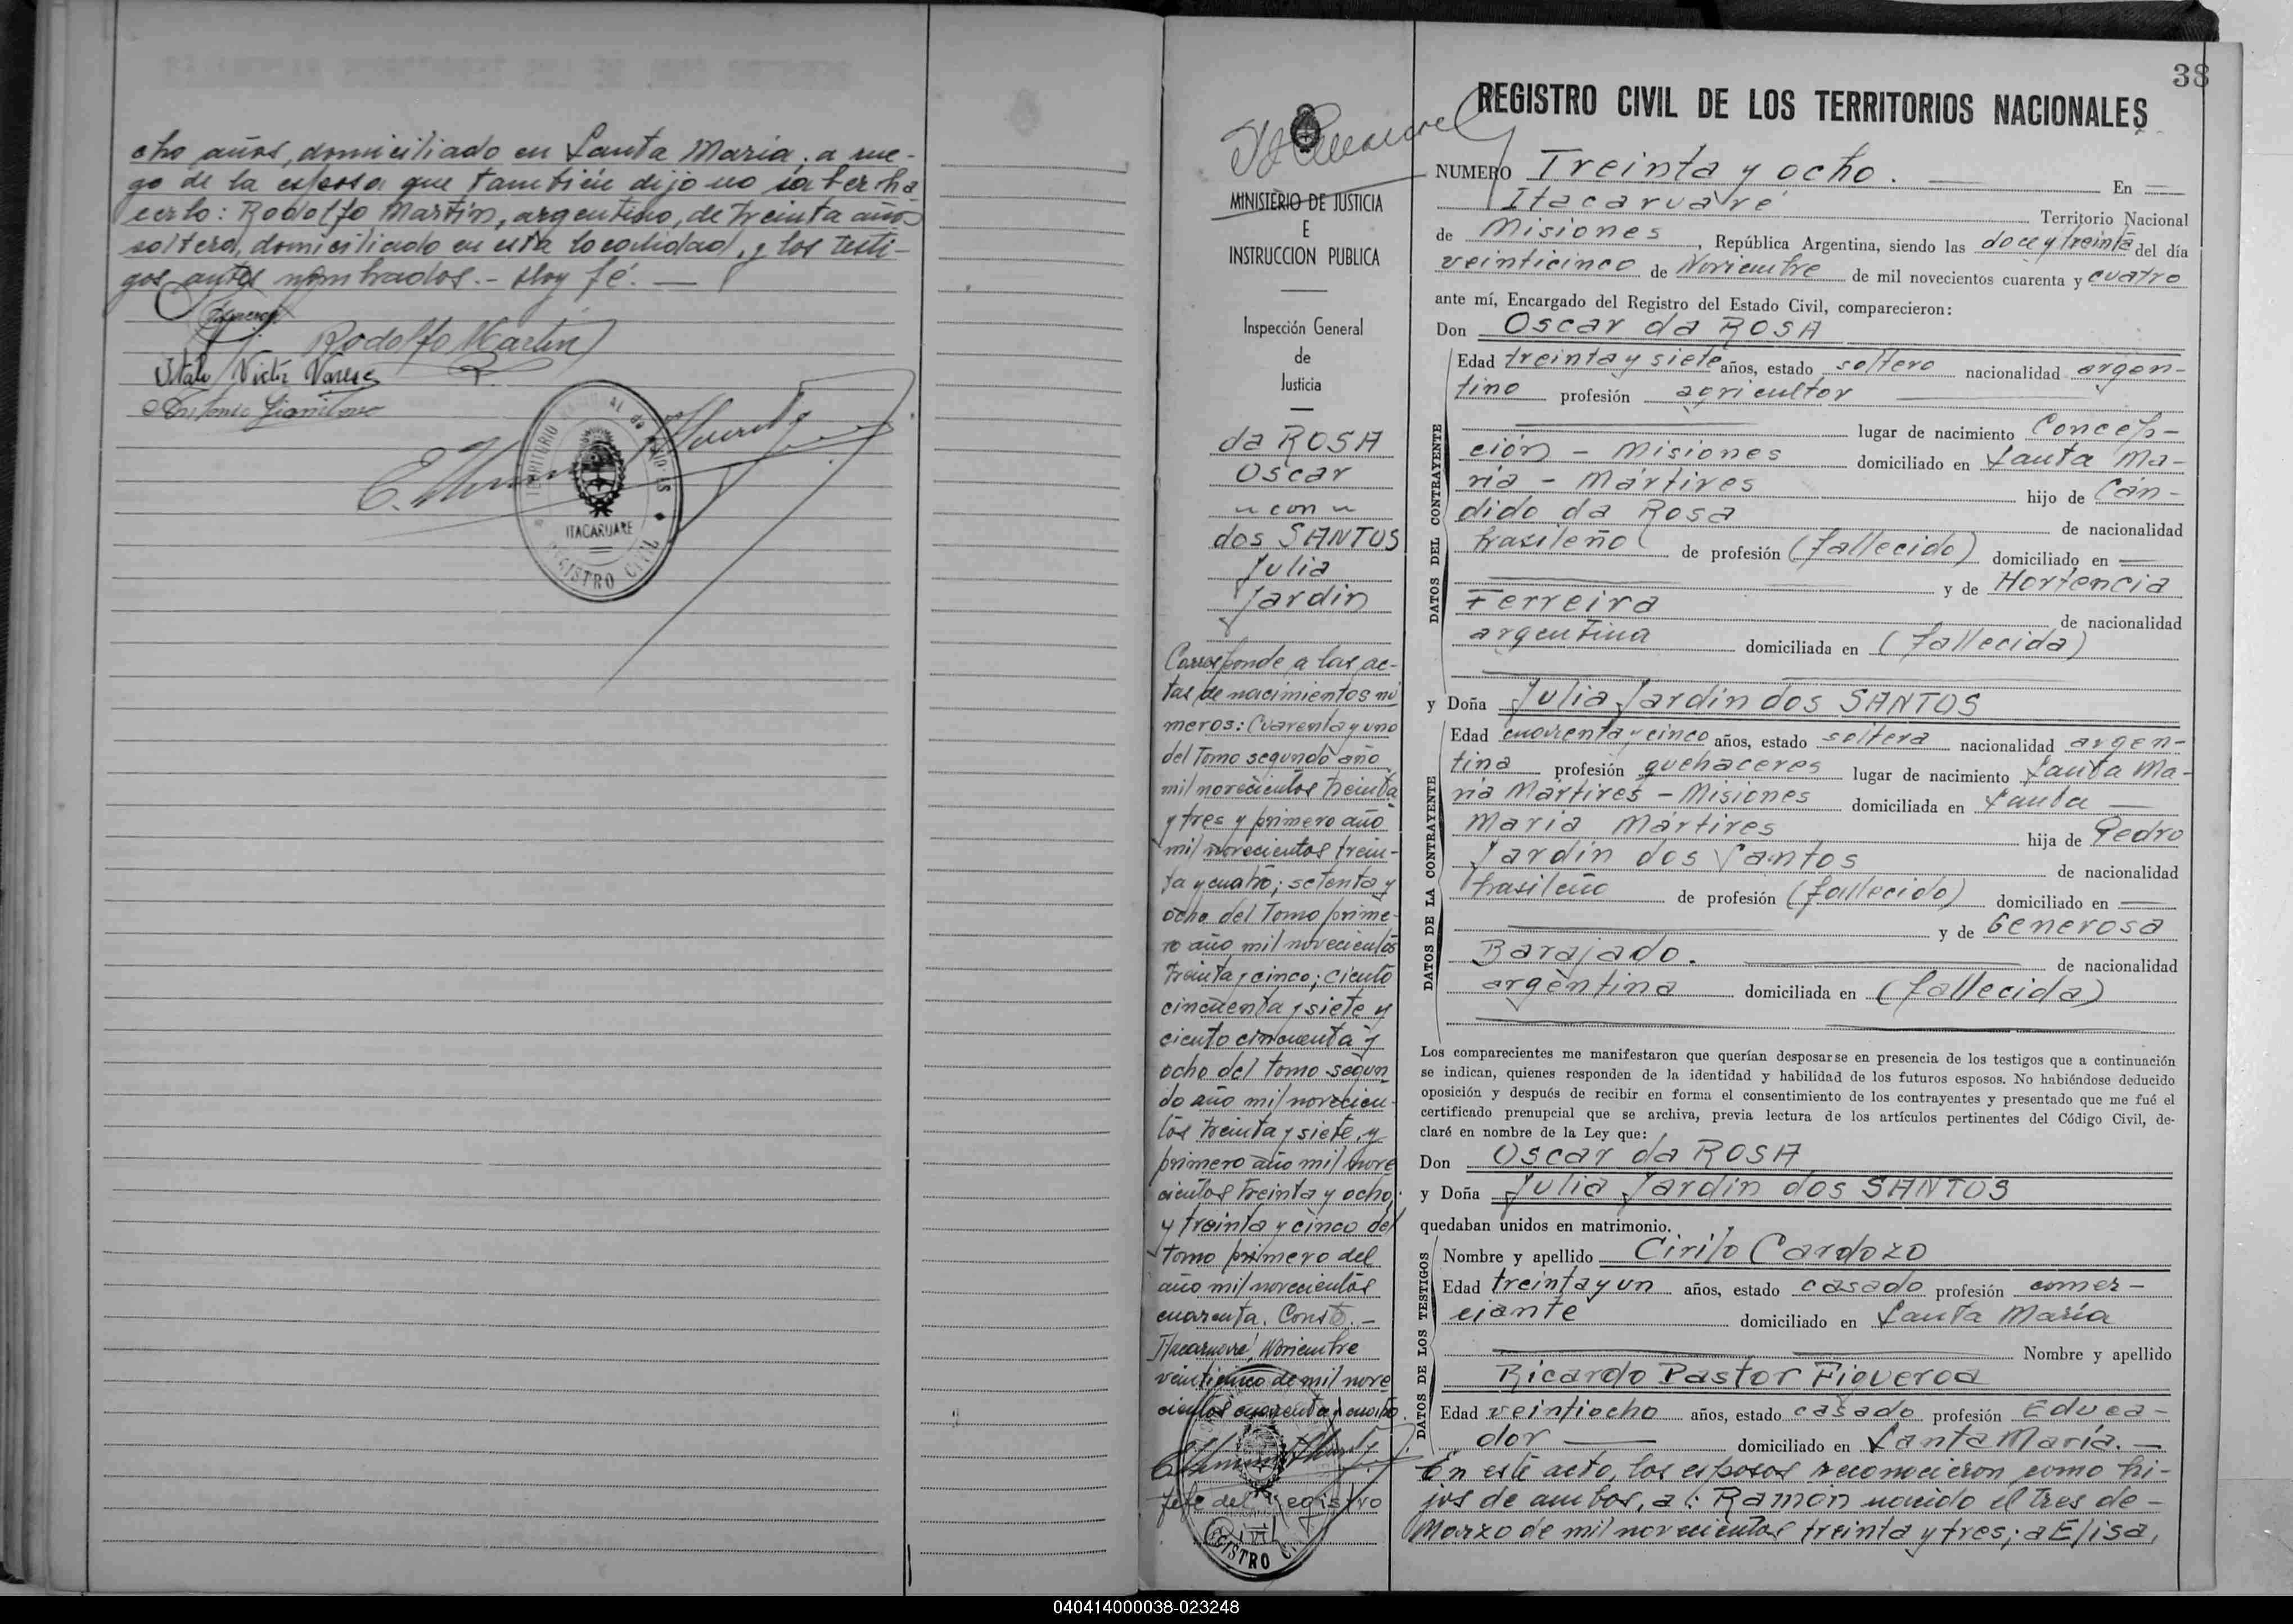 cho años, domiciliado en Santa María; a rue-
go de la esposa que también dijo no saber ha
cerlo: Rodolfo Martín, argentino, de treinta años
soltero, domiciliado en esta localidad, y los testi-
gos antes nombrados.- Doy fé. —
Rodolfo Martin
Italo Victor Varese
Antonio
TERRITORIO NACIONAL de MISIONES
ITACARUARE
REGISTRO CIVIL
38
MINISTERIO DE JUSTICIA
E
INSTRUCCION PUBLICA
Inspección General
de
Justicia
da ROSA
Oscar
" con "
dos SANTOS
Julia
Jardin
Corresponde a las ac-
tas de nacimientos nú
meros: Cuarenta y uno
del Tomo segundo año
mil novecientos treinta
y tres y primero año
mil novecientos trein-
ta y cuatro; setenta y
ocho del Tomo prime-
ro año mil novecientos
treinta y cinco; ciento
cincuenta y siete y
ciento cincuenta y
ocho del Tomo segun
do año mil novecien-
tos treinta y siete, y
primero año mil nove
cientos treinta y ocho;
y treinta y cinco del
Tomo primero del
año mil novecientos
cuarenta. Conste.-
Itacaruaré, Noviembre
veinticinco de mil nove
cientos cuarenta y cuatro.
Jefe del Registro
Civil
REGISTRO CIVIL DE LOS TERRITORIOS NACIONALES
NUMERO Treinta y ocho. — En —
Itacaruaré Territorio Nacional
de Misiones, República Argentina, siendo las doce y treinta del día
veinticinco de Noviembre de mil novecientos cuarenta y cuatro
ante mí, Encargado del Registro del Estado Civil, comparecieron:
Don Oscar da ROSA
DATOS DEL CONTRAYENTE
Edad treinta y siete años, estado soltero nacionalidad argen-
tino profesión agricultor
lugar de nacimiento Concep-
ción - Misiones domiciliado en Santa Ma-
ría - Mártires hijo de Cán-
dido da Rosa de nacionalidad
brasileño de profesión (fallecido) domiciliado en —
y de Hortencia
Ferreira de nacionalidad
argentina domiciliada en (fallecida)
y Doña Julia Jardin dos SANTOS
DATOS DE LA CONTRAYENTE
Edad cuarenta y cinco años, estado soltera nacionalidad argen-
tina profesión quehaceres lugar de nacimiento Santa Ma-
ría Mártires - Misiones domiciliada en Santa —
María Mártires hija de Pedro
Jardin dos Santos de nacionalidad
brasileño de profesión (fallecido) domiciliado en —
y de Generosa
Barajado. de nacionalidad
argentina domiciliada en (fallecida)
Los comparecientes me manifestaron que querían desposarse en presencia de los testigos que a continuación
se indican, quienes responden de la identidad y habilidad de los futuros esposos. No habiéndose deducido
oposición y después de recibir en forma el consentimiento de los contrayentes y presentado que me fué el
certificado prenupcial que se archiva, previa lectura de los artículos pertinentes del Código Civil, de-
claré en nombre de la Ley que:
Don Oscar da ROSA
y Doña Julia Jardin dos SANTOS
quedaban unidos en matrimonio.
DATOS DE LOS TESTIGOS
Nombre y apellido Cirilo Cardozo
Edad treinta y un años, estado casado profesión comer-
ciante domiciliado en Santa María
Nombre y apellido
Ricardo Pastor Figueroa
Edad veintiocho años, estado casado profesión Educa-
dor — domiciliado en Santa María. —
En este acto, los esposos reconocieron como hi-
jos de ambos, a: Ramón nacido el tres de -
Marzo de mil novecientos treinta y tres; a Elisa,
REGISTRO CIVIL
040414000038-023248